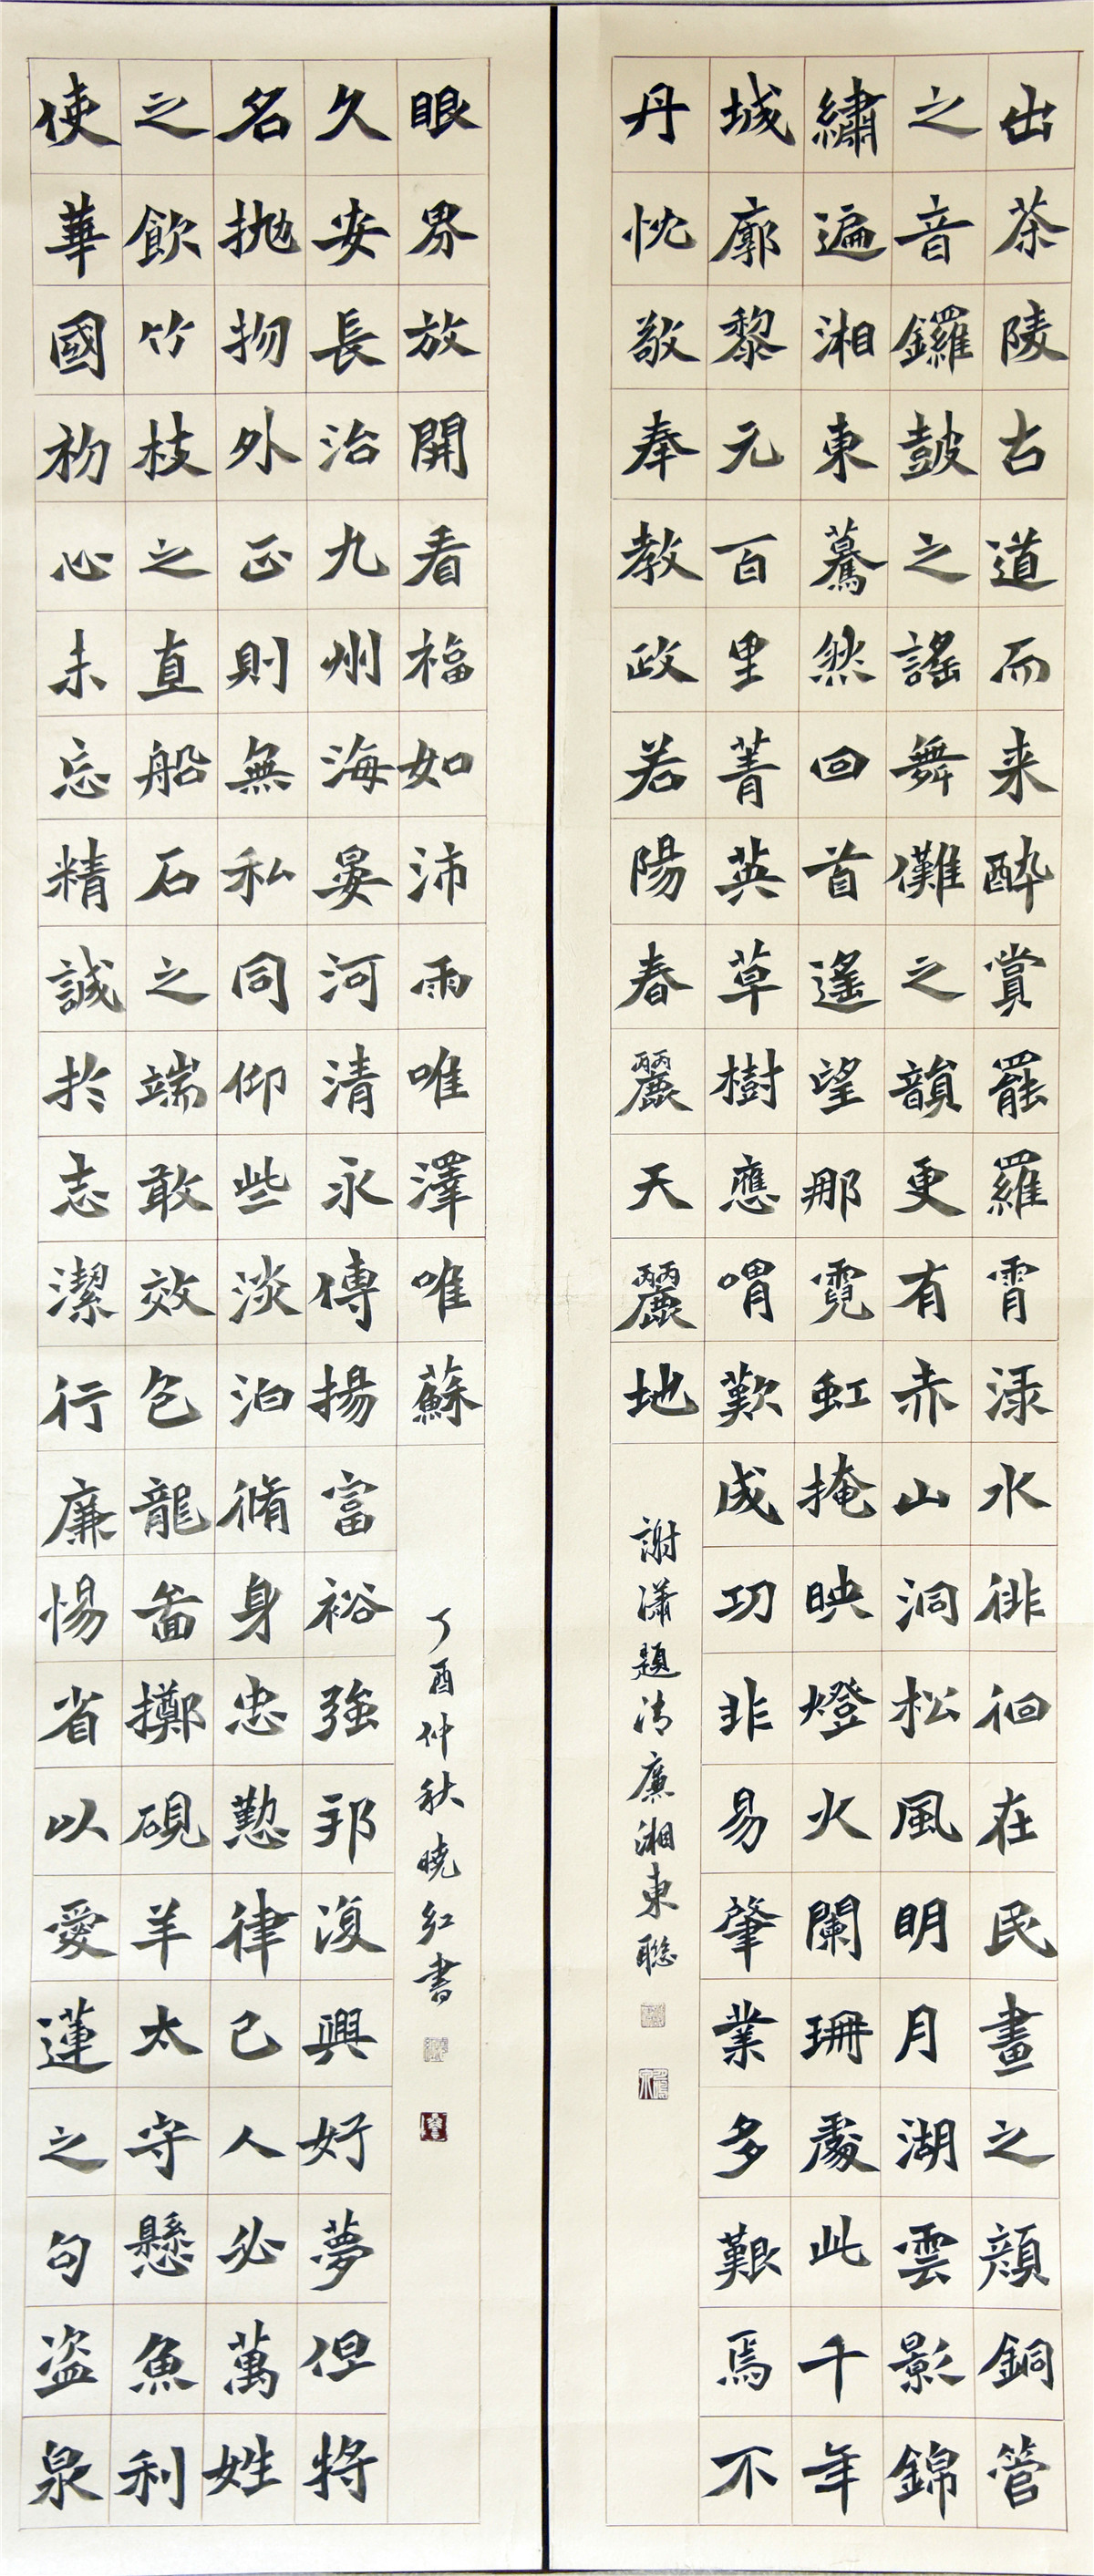 出茶陵古道而来醉賞罷羅霄淥水徘徊在民畫之顔銅管
之音鑼鼓之謠舞儺之韻更有赤山洞松風明月湖雲影錦
繡遍湘東驀然回首遙望那霓虹掩映燈火闌珊處此千年
城廓黎元百里菁英草樹應喟歎成功非易肇業多艱焉不
丹忱敬奉教政若陽春麗天麗地
謝瀟題清廉湘東聯
使華國初心未忘精誠於志潔行廉惕省以愛蓮之句盜泉
之飲竹枝之直船石之端敢效包龍啚擲硯羊太守懸魚利
名抛物外正則無私同仰些淡泊脩身忠懃律己人必萬姓
久安長治九州海晏河清永傳揚富裕強邦復興好夢但將
眼界放開看福如沛雨唯澤唯蘇
丁酉仲秋曉紅書